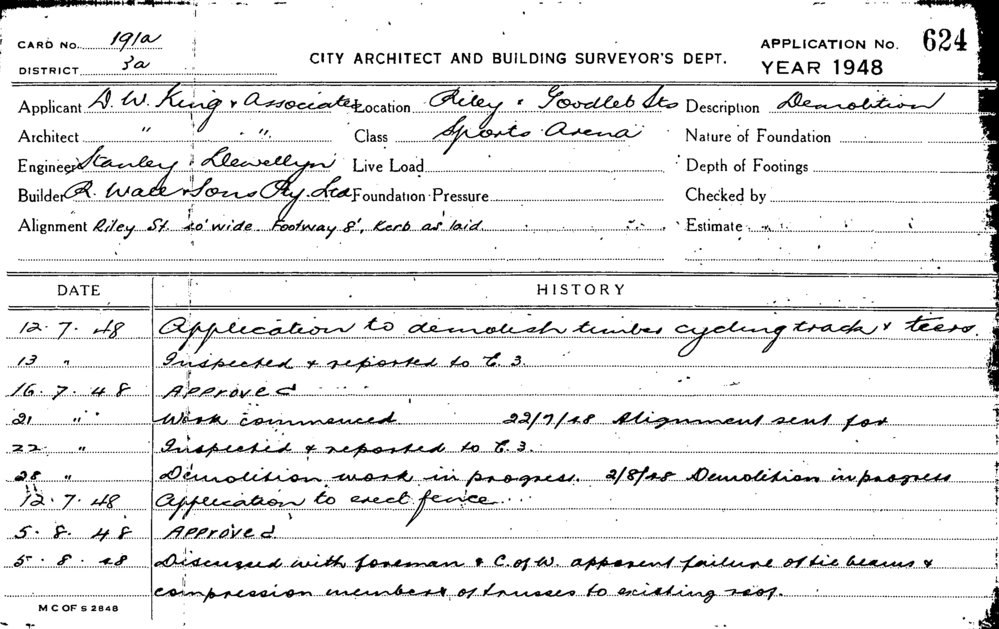 CARD No. 191a
DISTRICT 3a
CITY ARCHITECT AND BUILDING SURVEYOR'S DEPT.
APPLICATION No. 624
YEAR 1948
Applicant D. W. King & Associates Location Riley & Goodlet Sts Description Demolition
Architect " " Class Sports Arena Nature of Foundation
Engineer Stanley & Llewellyn Live Load Depth of Footings
Builder R. Wall & Sons Pty. Ltd Foundation Pressure Checked by
Alignment Riley St. 20' wide Footway 8', Kerb as laid Estimate
DATE HISTORY
12.7.48 Application to demolish timber cycling track & tears.
13 " Inspected & reported to C.3.
16.7.48 Approved
21 " Work commenced 22/7/48 Alignment sent for
22 " Inspected & reported to C.3.
28 " Demolition work in progress. 2/8/48 Demolition in progress
12.7.48 Application to erect fence
5.8.48 Approved
5.8.48 Discussed with foreman & C. of W. apparent failure of tie beams &
compression members of trusses to existing roof.
M C OF S 2848